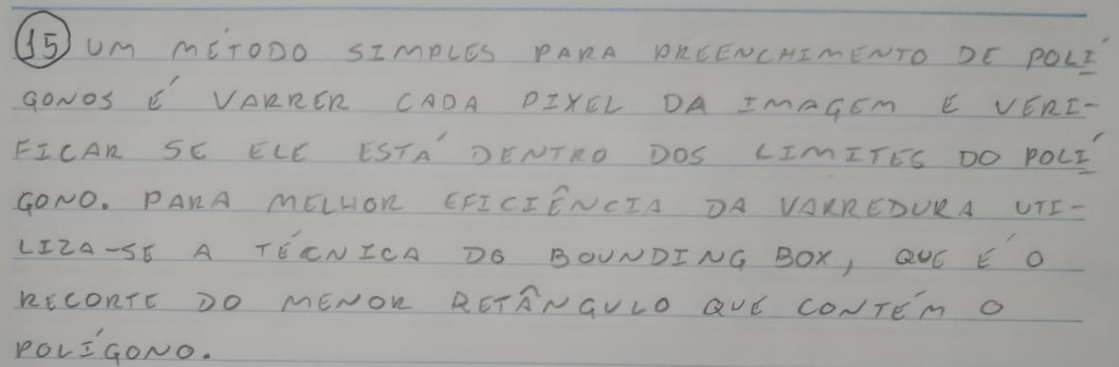 15 UM MÉTODO SIMPLES PARA PREENCHIMENTO DE POLÍ
GONOS É VARRER CADA PIXEL DA IMAGEM E VERI-
FICAR SE ELE ESTÁ DENTRO DOS LIMITES DO POLÍ
GONO. PARA MELHOR EFICIÊNCIA DA VARREDURA UTI-
LIZA-SE A TÉCNICA DO BOUNDING BOX, QUE É O
RECORTE DO MENOR RETÂNGULO QUE CONTÉM O
POLÍGONO.